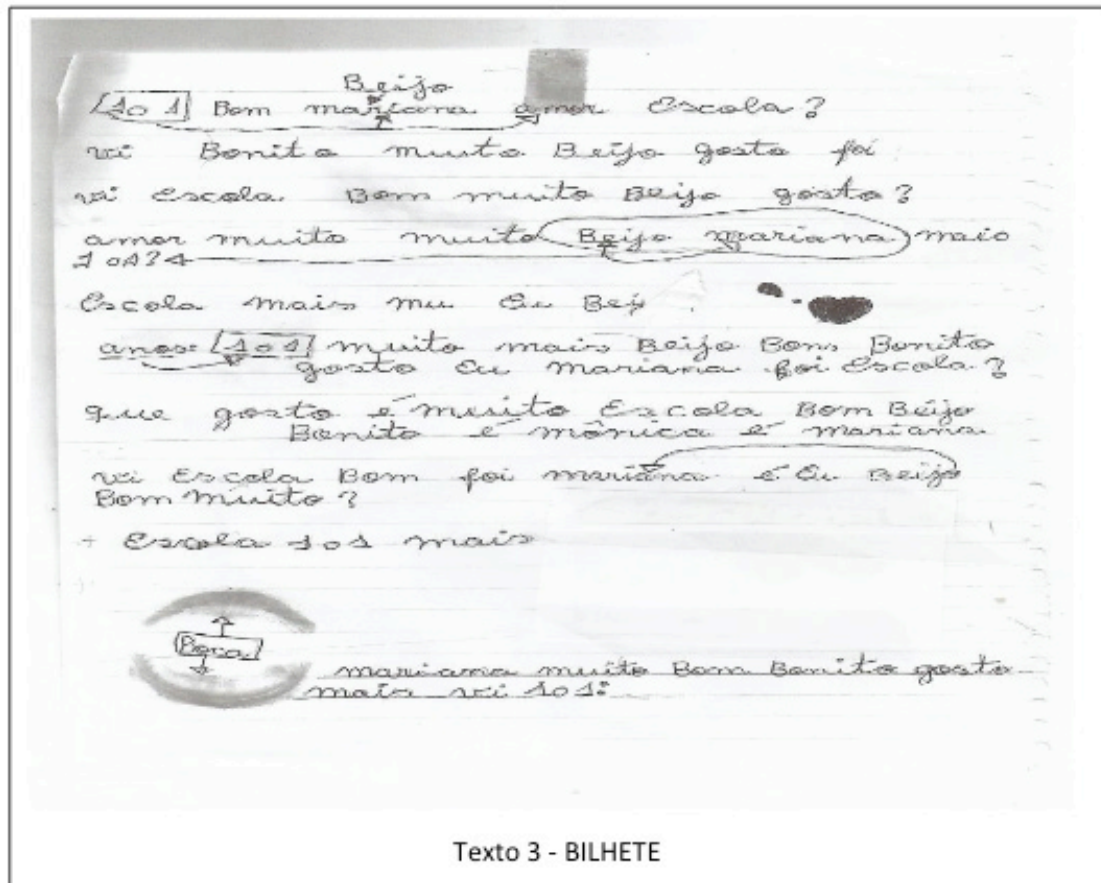 Beijo
101 Bom mariana amor Escola?
vi Bonito muito Beijo gosto foi
vi Escola Bom muito Beijo gosto?
amor muito muito Beijo mariana maio
101?
Escola mais mu Eu Beij
anos: 101 muito mais Beijo Bom Bonito
gosto Eu mariana foi Escola?
que gosto é muito Escola Bom Beijo
Bonito é mônica é mariana
vi Escola Bom foi mariana é Eu Beijo
Bom muito?
+ Escola 101 mais
Boca
mariana muito Bom Bonito gosto
mais vi 101:
Texto 3 - BILHETE